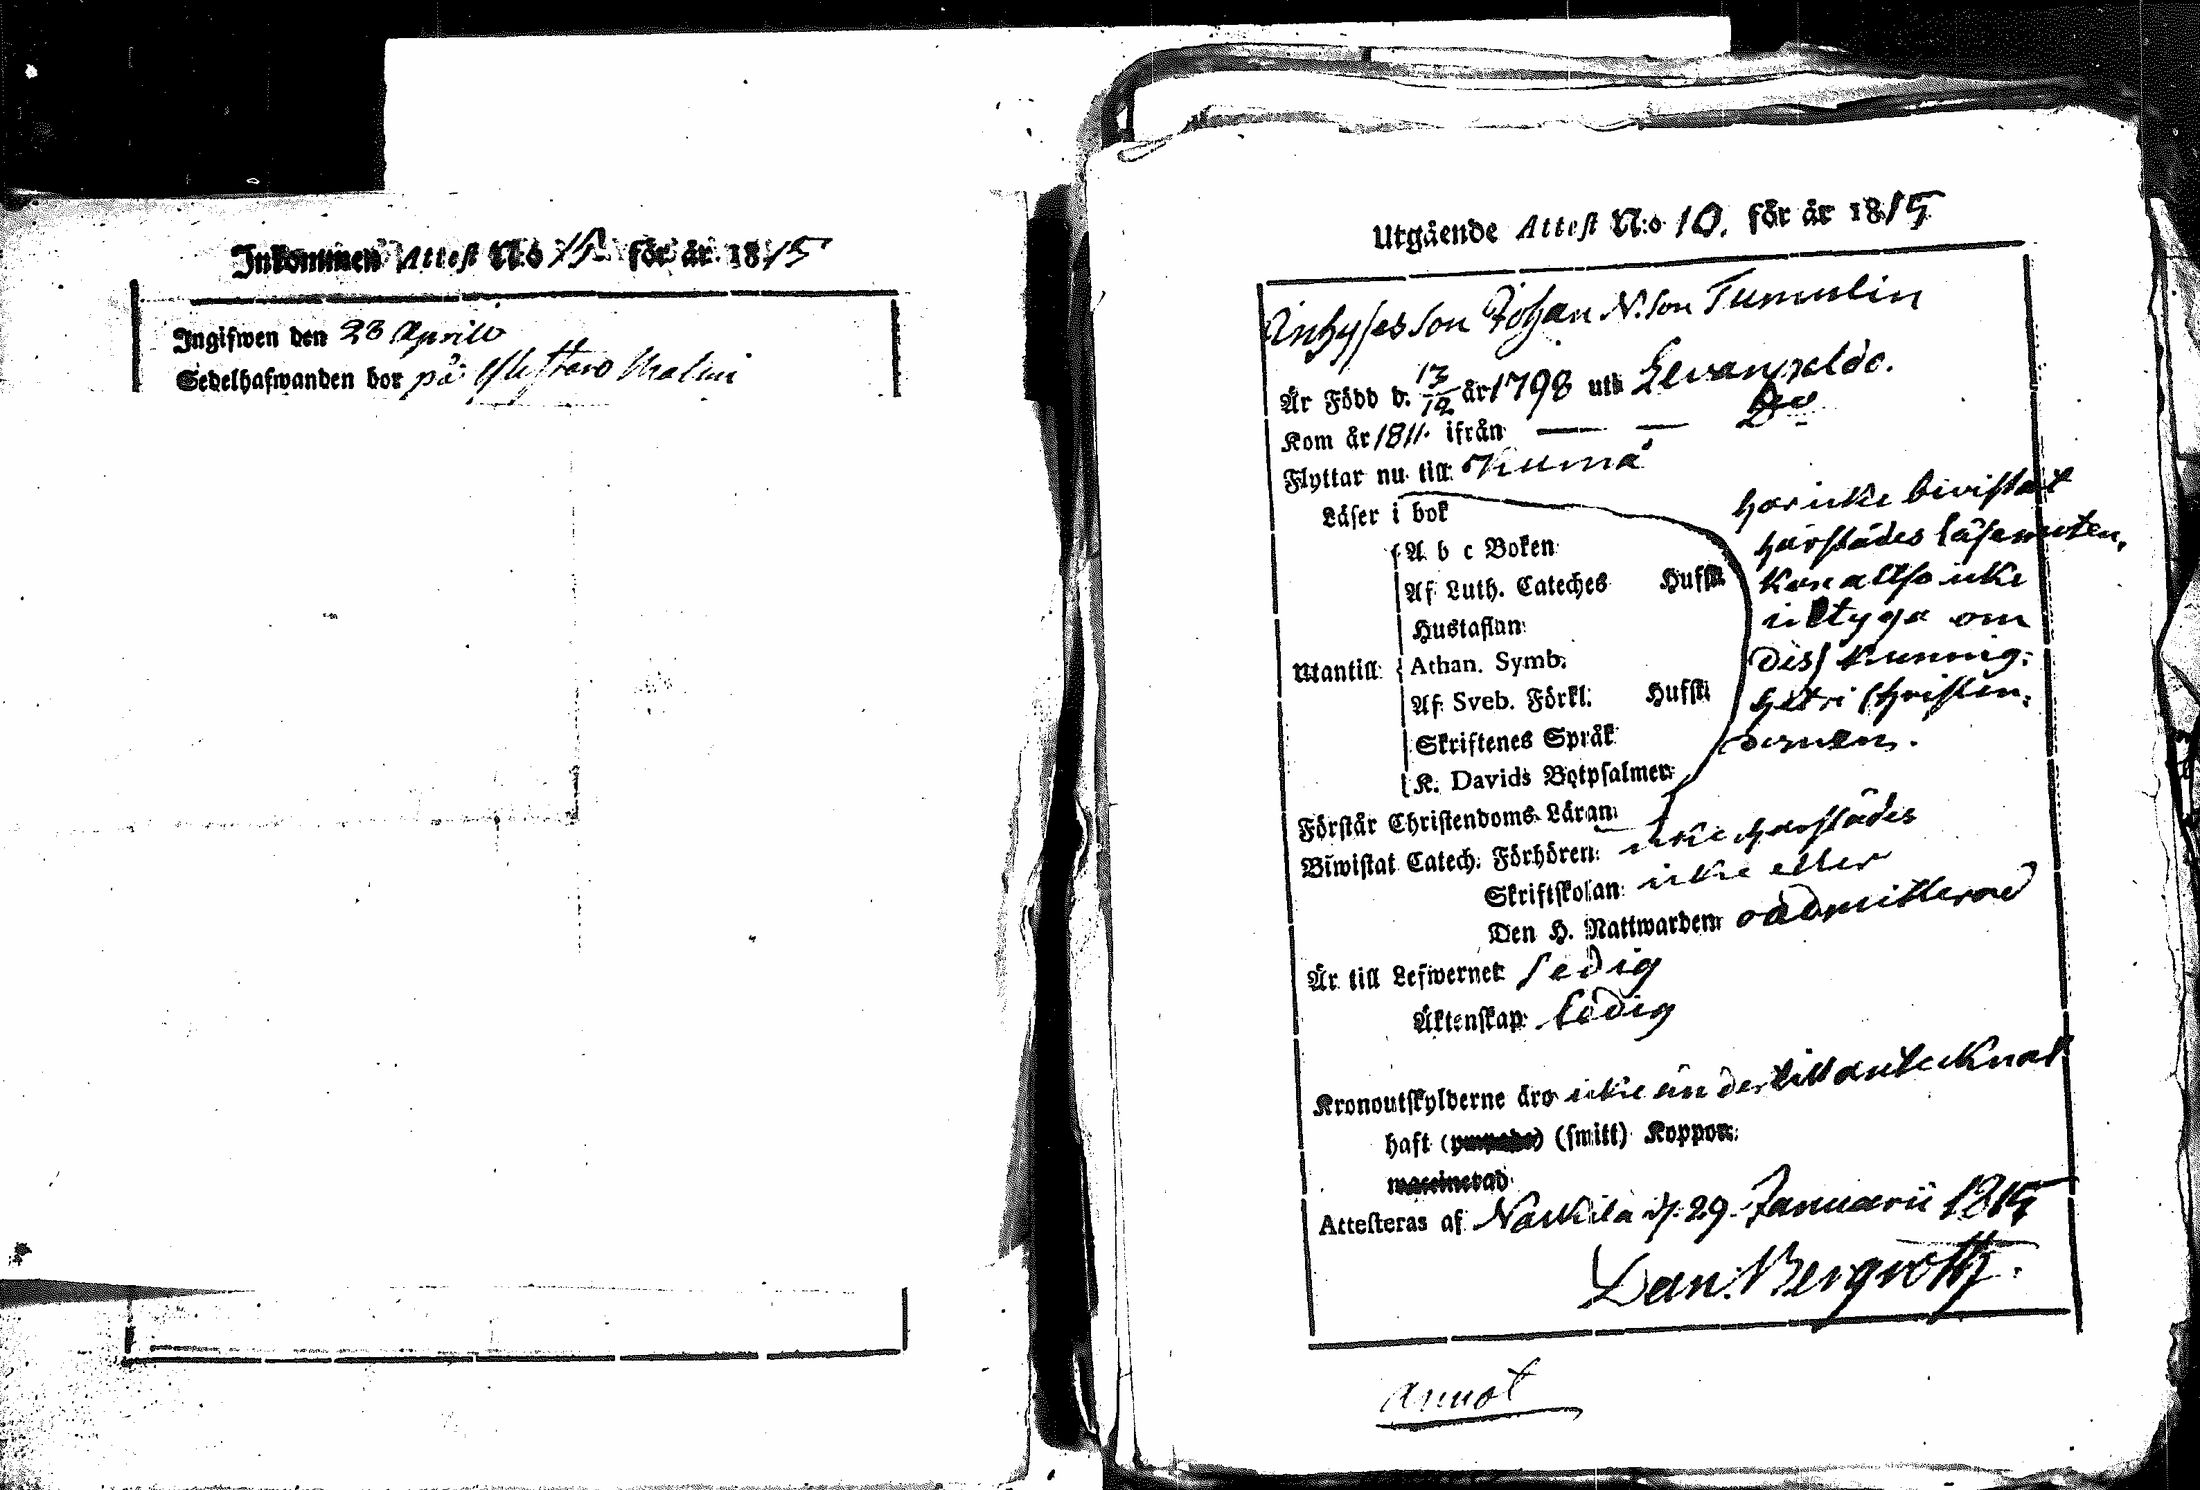 Inkommen Attest N:o 15 för år 1815
Ingifwen den 23 Aprill
Sedelhafwanden bor på Malmi
Utgående Attest N:o 10. för år 1815
Inhyses son Johan N. son Tumulin
Är Född d. 13/12 år 1798 uti
Kom år 1811. ifrån — — Do
Flyttar nu till Kumå
Läser i bok
A b c Boken
Af Luth. Cateches Hufst.
Hustaflan
Utantill Athan. Symb.
Af Sveb. Förkl. Hufst.
Skriftenes Språk
K. Davids Botpsalmer
har icke bivistat
härstädes läsemöten,
kan altso icke
intyga om
dess kunnig:
het i Christen:
domen.
Förstår Christendoms Läran
Biwistat Catech. Förhören: icke härstädes
Skriftskolan: icke eller
Den H. Nattwarden oadmitterad
Är till Lefwernet sedig
Äktenskap ledig
Kronoutskylderne äro icke än dertill antecknat
haft (smitt) Koppor
waccinerad
Attesteras af Nåckila d. 29. Januarii 1815
Dan. Bergroth.
annot